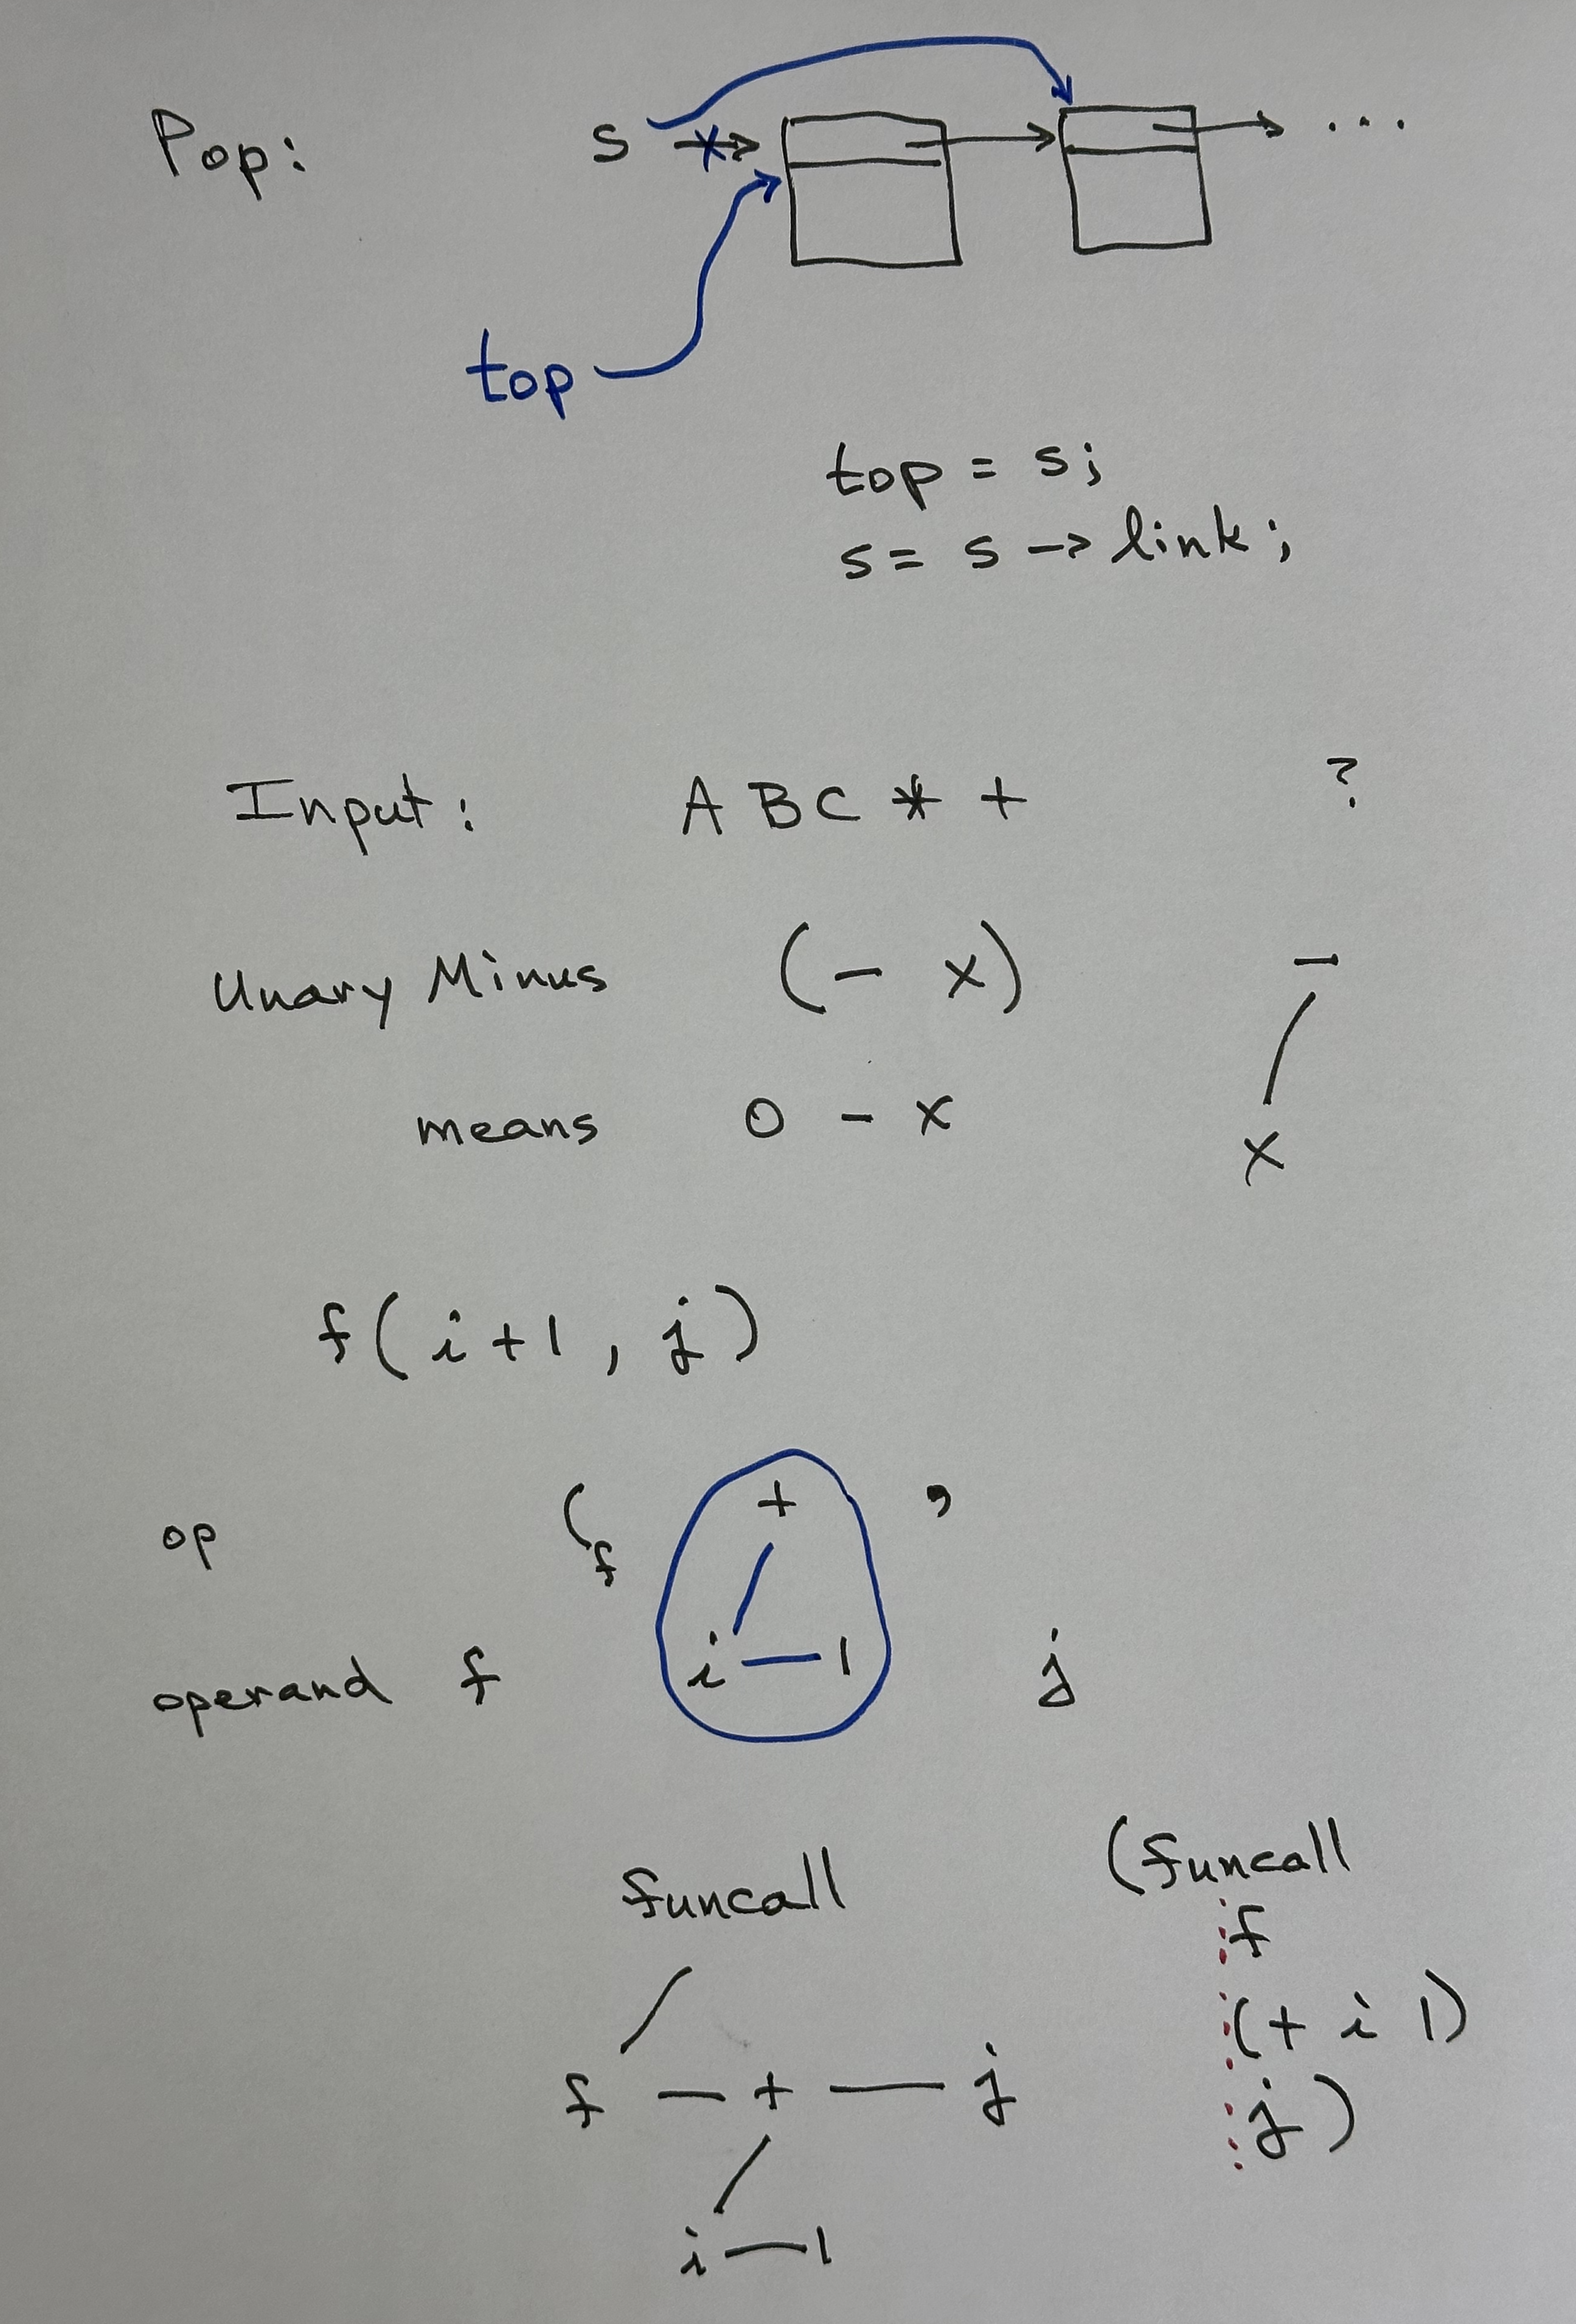 Pop: s ...
top
top = s;
s = s -> link;
Input: A B C * + ?
Unary Minus (- x) -
means 0 - x x
f(i+1, j)
op (f + ,
operand f i 1 j
funcall (funcall
f
f + j (+ i 1)
j)
i 1